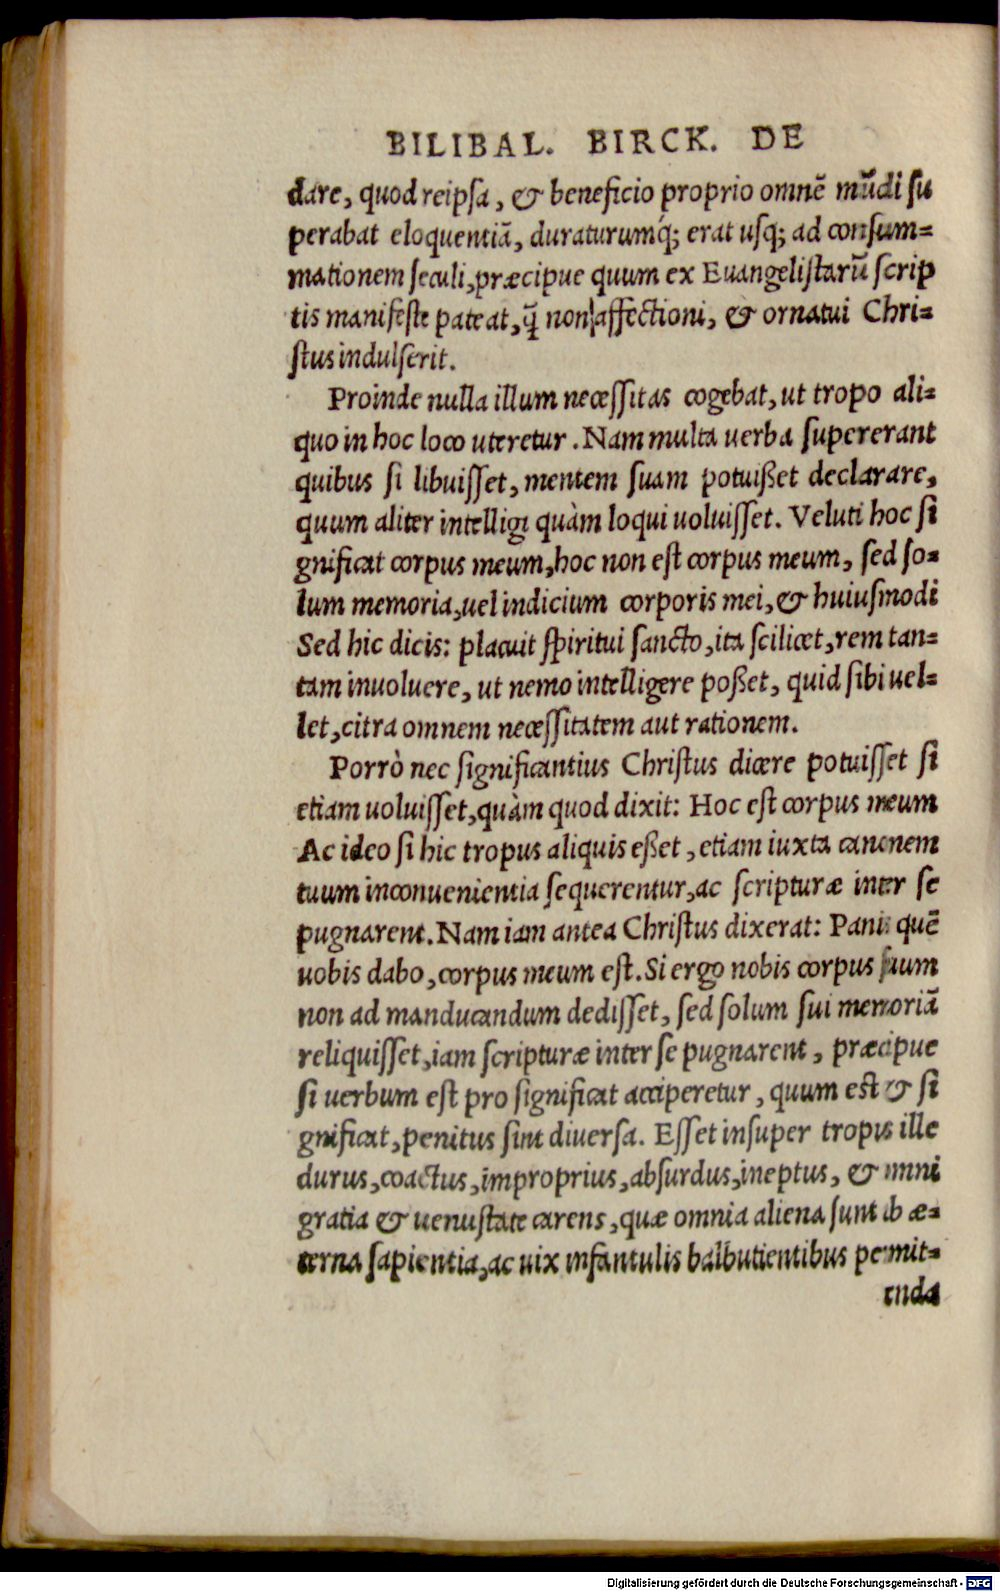 BILIBAL. BIRCK. DE
dare, quod reipsa, & beneficio proprio omnē mūdi su
perabat eloquentiā, duraturumq́; erat usq; ad consum=
mationem seculi, præcipue quum ex Euangelistarū scrip
tis manifeste pateat, q̄ non affectioni, & ornatui Chri=
stus indulserit.
Proinde nulla illum necessitas cogebat, ut tropo ali=
quo in hoc loco uteretur. Nam multa uerba supererant
quibus si libuisset, mentem suam potuißet declarare,
quum aliter intelligi quàm loqui uoluisset. Veluti hoc si
gnificat corpus meum, hoc non est corpus meum, sed so=
lum memoria, uel indicium corporis mei, & huiusmodi
Sed hic dicis: placuit spiritui sancto, ita scilicet, rem tan=
tam inuoluere, ut nemo intelligere poßet, quid sibi uel=
let, citra omnem necessitatem aut rationem.
Porrò nec significantius Christus dicere potuisset si
etiam uoluisset, quàm quod dixit: Hoc est corpus meum
Ac ideo si hic tropus aliquis eßet, etiam iuxta canonem
tuum inconuenientia sequerentur, ac scripturæ inter se
pugnarent. Nam iam antea Christus dixerat: Panis quē
uobis dabo, corpus meum est. Si ergo nobis corpus suum
non ad manducandum dedisset, sed solum sui memoriā
reliquisset, iam scripturæ inter se pugnarent, præcipue
si uerbum est pro significat acciperetur, quum est & si
gnificat, penitus sint diuersa. Esset insuper tropus ille
durus, coactus, improprius, absurdus, ineptus, & omni
gratia & uenustate carens, quæ omnia aliena sunt ab æ=
terna sapientia, ac uix infantulis balbutientibus permit=
tenda
Digitalisierung gefördert durch die Deutsche Forschungsgemeinschaft - DFG